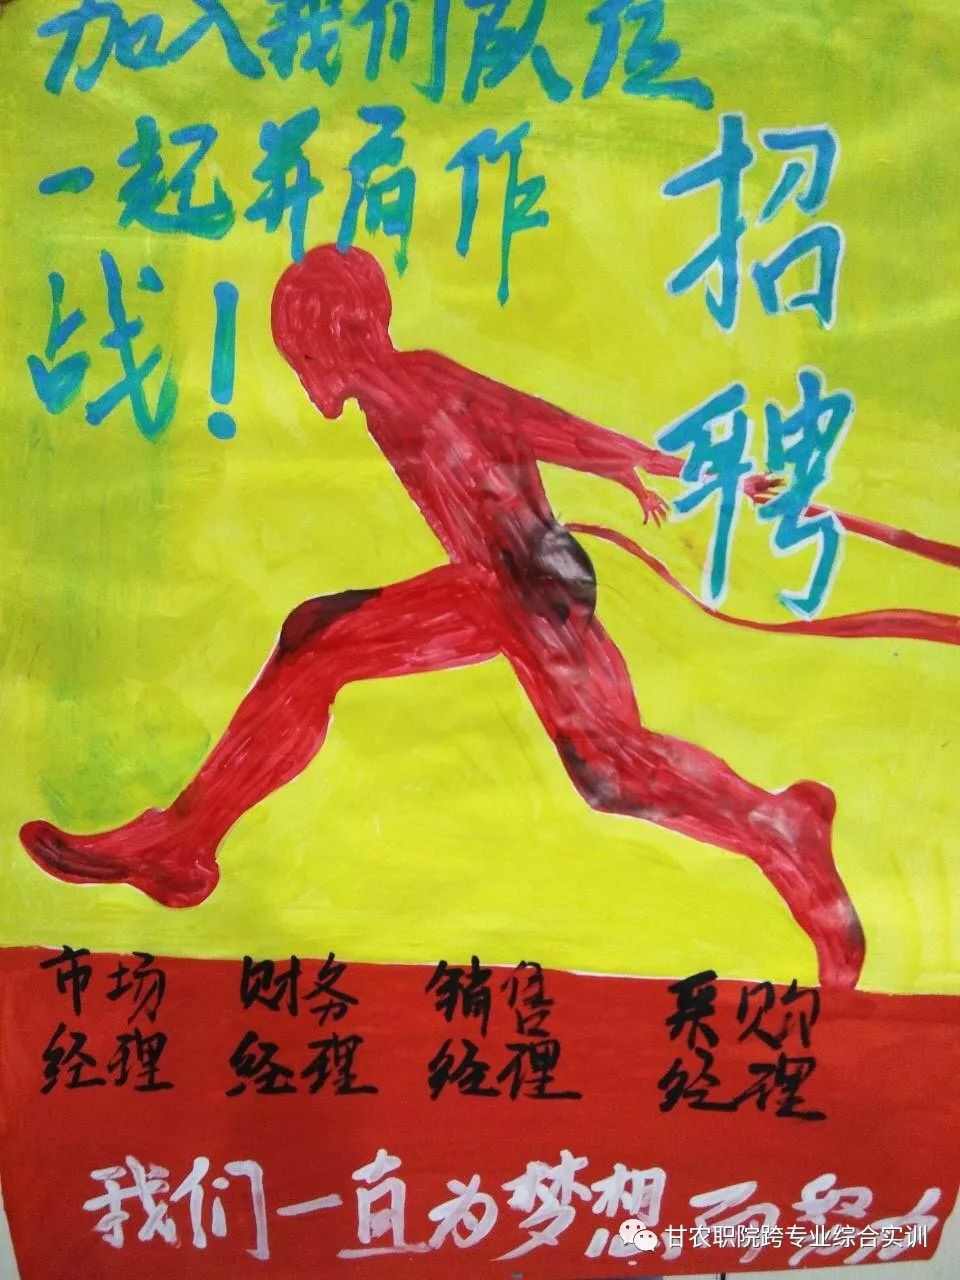 加入我们队伍
一起并肩作
战！
招
聘
市场
经理
财务
经理
销售
经理
采购
经理
我们一直为梦想而努力
甘农职院跨专业综合实训